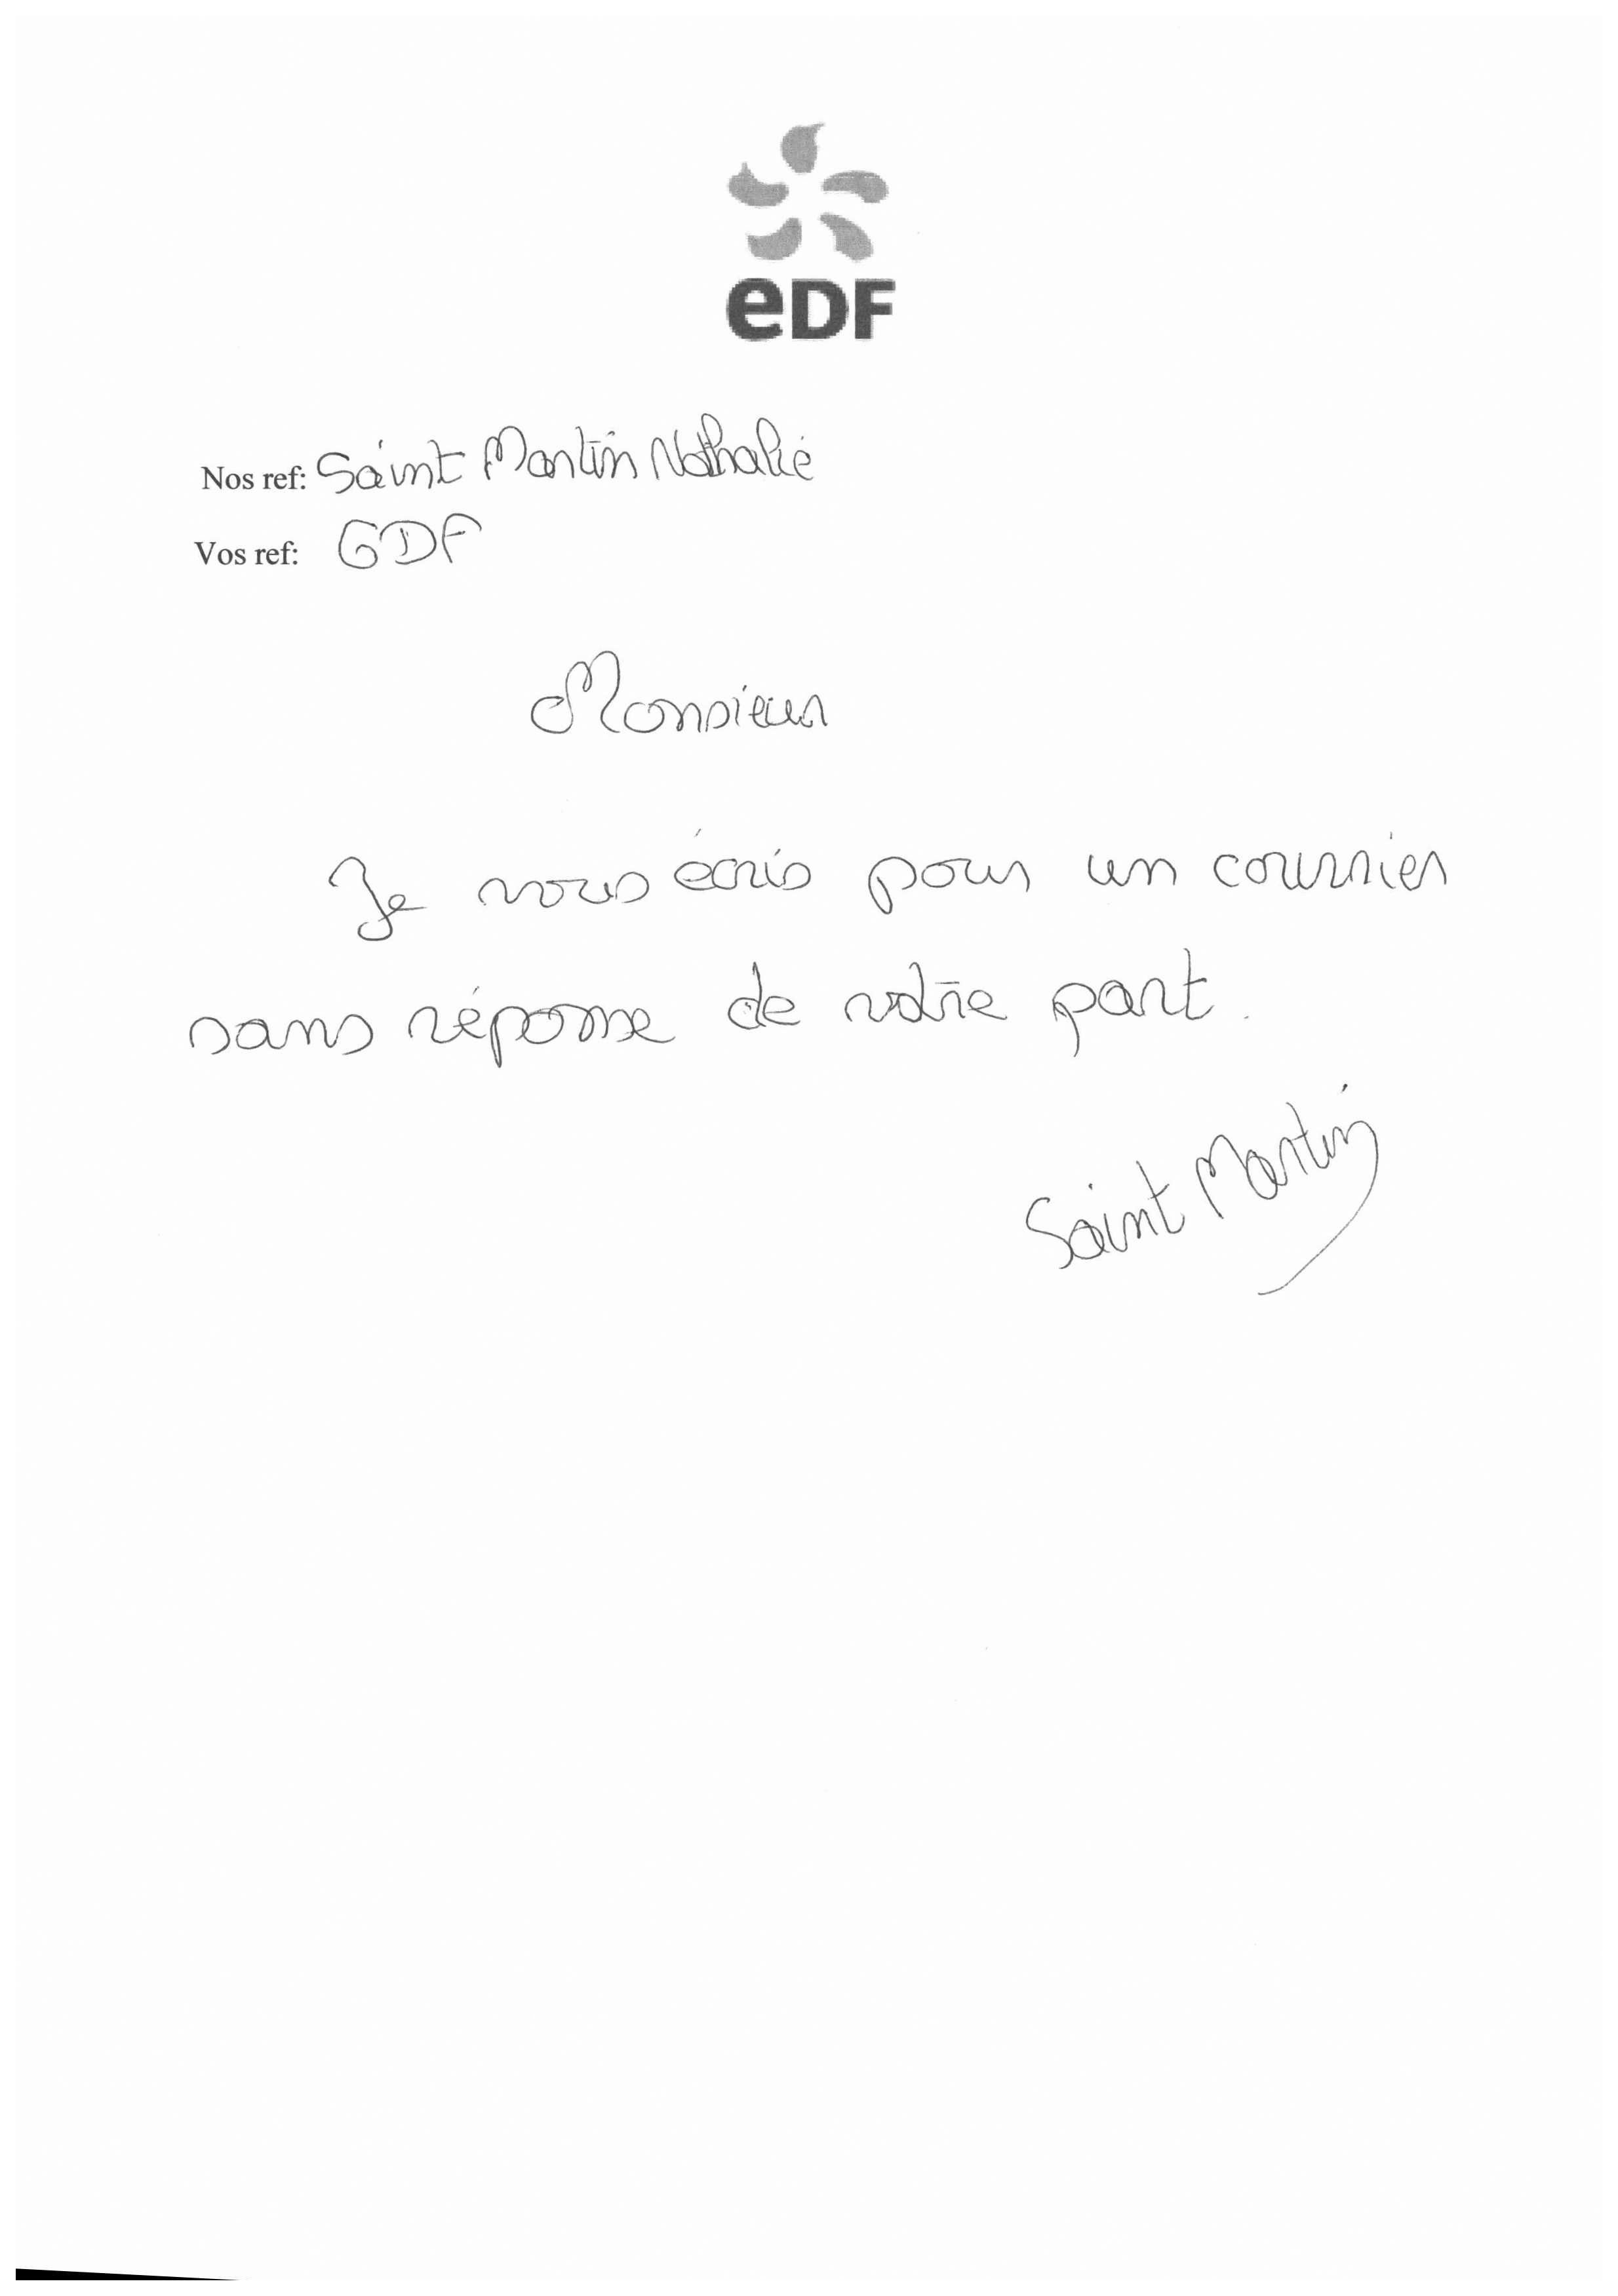 eDF
Nos ref: Saint Martin Nathalie
Vos ref: GDF
Monsieur
Je vous écris pour un courrier
sans réponse de votre part.
Saint Martin